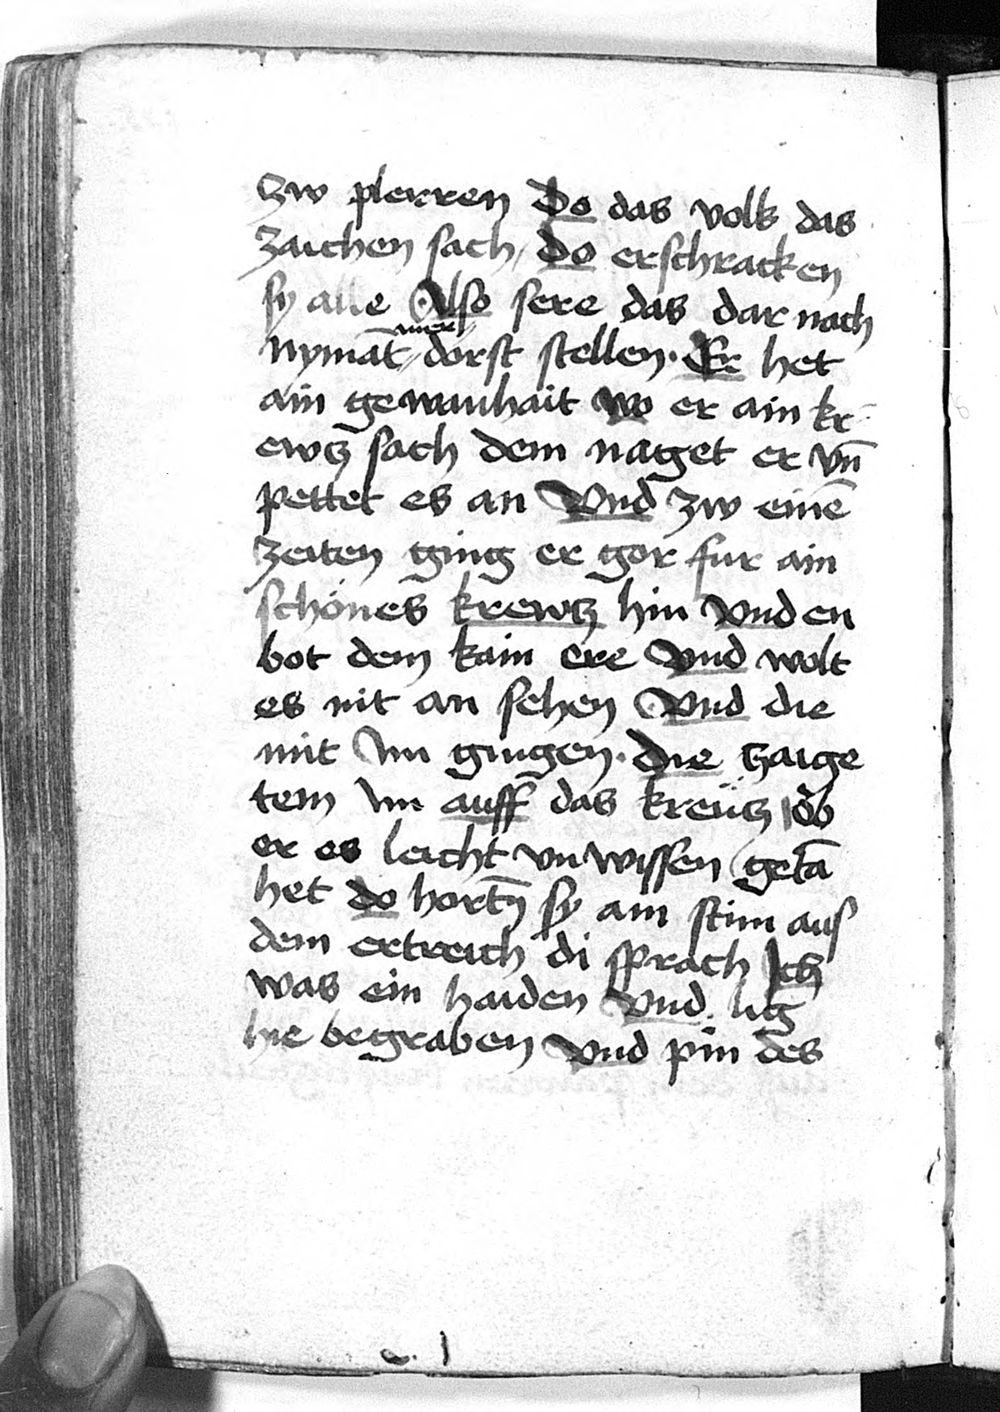 zw plerren Do das volk das
zaichen sach / do erschracken
sy alle Also sere das dar nach
nymāt mer dorst stellen · Er het
ain gewanhait wo er ain kr=
ewtz sach dem naget er vn̄
pettet es an Vnd zw einē
zeiten ging er gor fur ain
schönes krewtz hin Vnd en
bot dem kain ere Vnd wolt
es nit an sehen Vnd die
mit Im gingen · Die tzaige
tem Im auff das kreütz ob
er es leicht vn wissen getā
het do hortn̄ sy ain stim aus
dem ertreich di sprach Ich
was ein haiden Vnd lig
hie begraben Vnd pin des